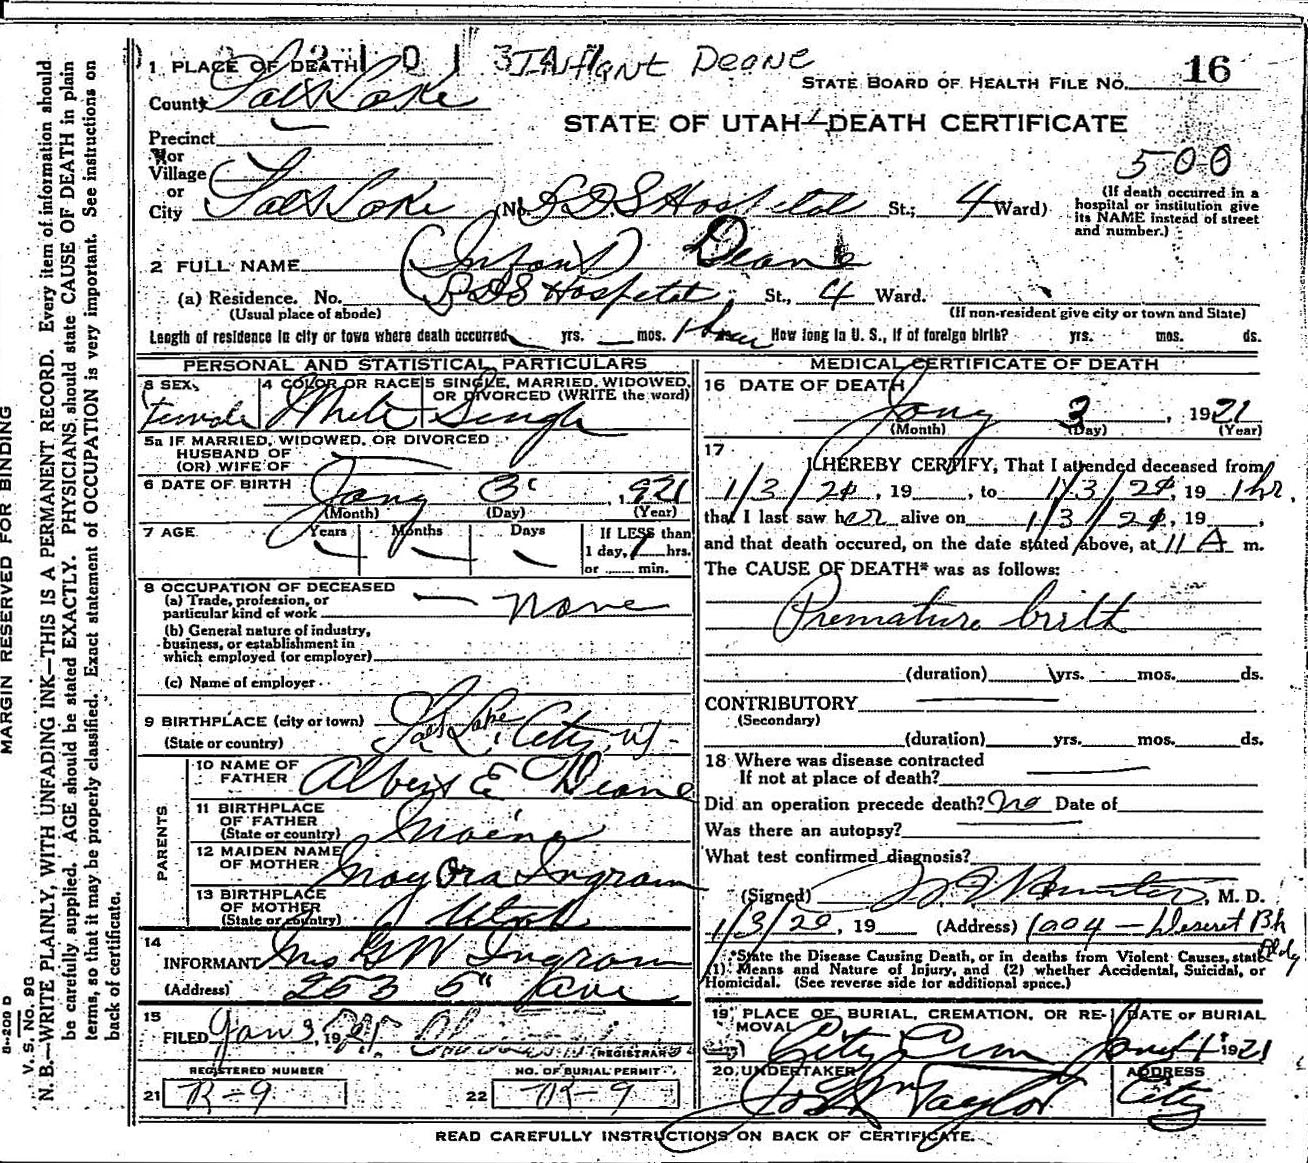 Infant Deane
1 PLACE OF DEATH
STATE BOARD OF HEALTH FILE NO. 16
County Salt Lake
STATE OF UTAH—DEATH CERTIFICATE
Precinct
or
Village
500
or
City Salt Lake (No. L D S Hospital St.; 4 Ward)
(If death occurred in a hospital or institution give its NAME instead of street and number.)
2 FULL NAME (Infant) Deane
(a) Residence. No. L D S Hospital St., 4 Ward.
(Usual place of abode) (If non-resident give city or town and State)
Length of residence in city or town where death occurred yrs. mos. 1 hour How long in U. S., if of foreign birth? yrs. mos. ds.
PERSONAL AND STATISTICAL PARTICULARS
3 SEX 4 COLOR OR RACE 5 SINGLE, MARRIED, WIDOWED, OR DIVORCED (WRITE the word)
Female White Single
5a IF MARRIED, WIDOWED, OR DIVORCED
HUSBAND OF
(OR) WIFE OF
6 DATE OF BIRTH Jany 3, 1921
(Month) (Day) (Year)
7 AGE Years Months Days If LESS than
1 day, 1 hrs.
or min.
8 OCCUPATION OF DECEASED
(a) Trade, profession, or
particular kind of work — none
(b) General nature of industry,
business, or establishment in
which employed (or employer)
(c) Name of employer
9 BIRTHPLACE (city or town) Salt Lake City, Ut.
(State or country)
PARENTS
10 NAME OF FATHER Albert E Deane
11 BIRTHPLACE OF FATHER Maine
(State or country)
12 MAIDEN NAME OF MOTHER May Ora Ingram
13 BIRTHPLACE OF MOTHER Utah
(State or country)
14
INFORMANT Mrs G W Ingram
(Address) 253 5" Ave
15
FILED Jan 3, 19
REGISTRAR
REGISTERED NUMBER NO. OF BURIAL PERMIT
21 R-9 22 R-9
MEDICAL CERTIFICATE OF DEATH
16 DATE OF DEATH
Jany 3, 1921
(Month) (Day) (Year)
17
I HEREBY CERTIFY, That I attended deceased from
1/3/21, 19 , to 1/3/21, 19 1 hr.
that I last saw her alive on 1/3/21, 19 ,
and that death occured, on the date stated above, at 11 A m.
The CAUSE OF DEATH* was as follows:
Premature birth
(duration) yrs. mos. ds.
CONTRIBUTORY
(Secondary)
(duration) yrs. mos. ds.
18 Where was disease contracted
If not at place of death?
Did an operation precede death? no Date of
Was there an autopsy?
What test confirmed diagnosis?
(Signed) , M. D.
1/3/20, 19 (Address) 1004 — Deseret Bk Bldg
*State the Disease Causing Death, or in deaths from Violent Causes, state
(1) Means and Nature of Injury, and (2) whether Accidental, Suicidal, or
Homicidal. (See reverse side for additional space.)
19 PLACE OF BURIAL, CREMATION, OR REMOVAL DATE OF BURIAL
City Cem 1921
20 UNDERTAKER ADDRESS
Jos Wm Taylor City
READ CAREFULLY INSTRUCTIONS ON BACK OF CERTIFICATE.
MARGIN RESERVED FOR BINDING
V. S. No. 98
N. B.—WRITE PLAINLY, WITH UNFADING INK—THIS IS A PERMANENT RECORD. Every item of information should
be carefully supplied. AGE should be stated EXACTLY. PHYSICIANS should state CAUSE OF DEATH in plain
terms, so that it may be properly classified. Exact statement of OCCUPATION is very important. See instructions on
back of certificate.